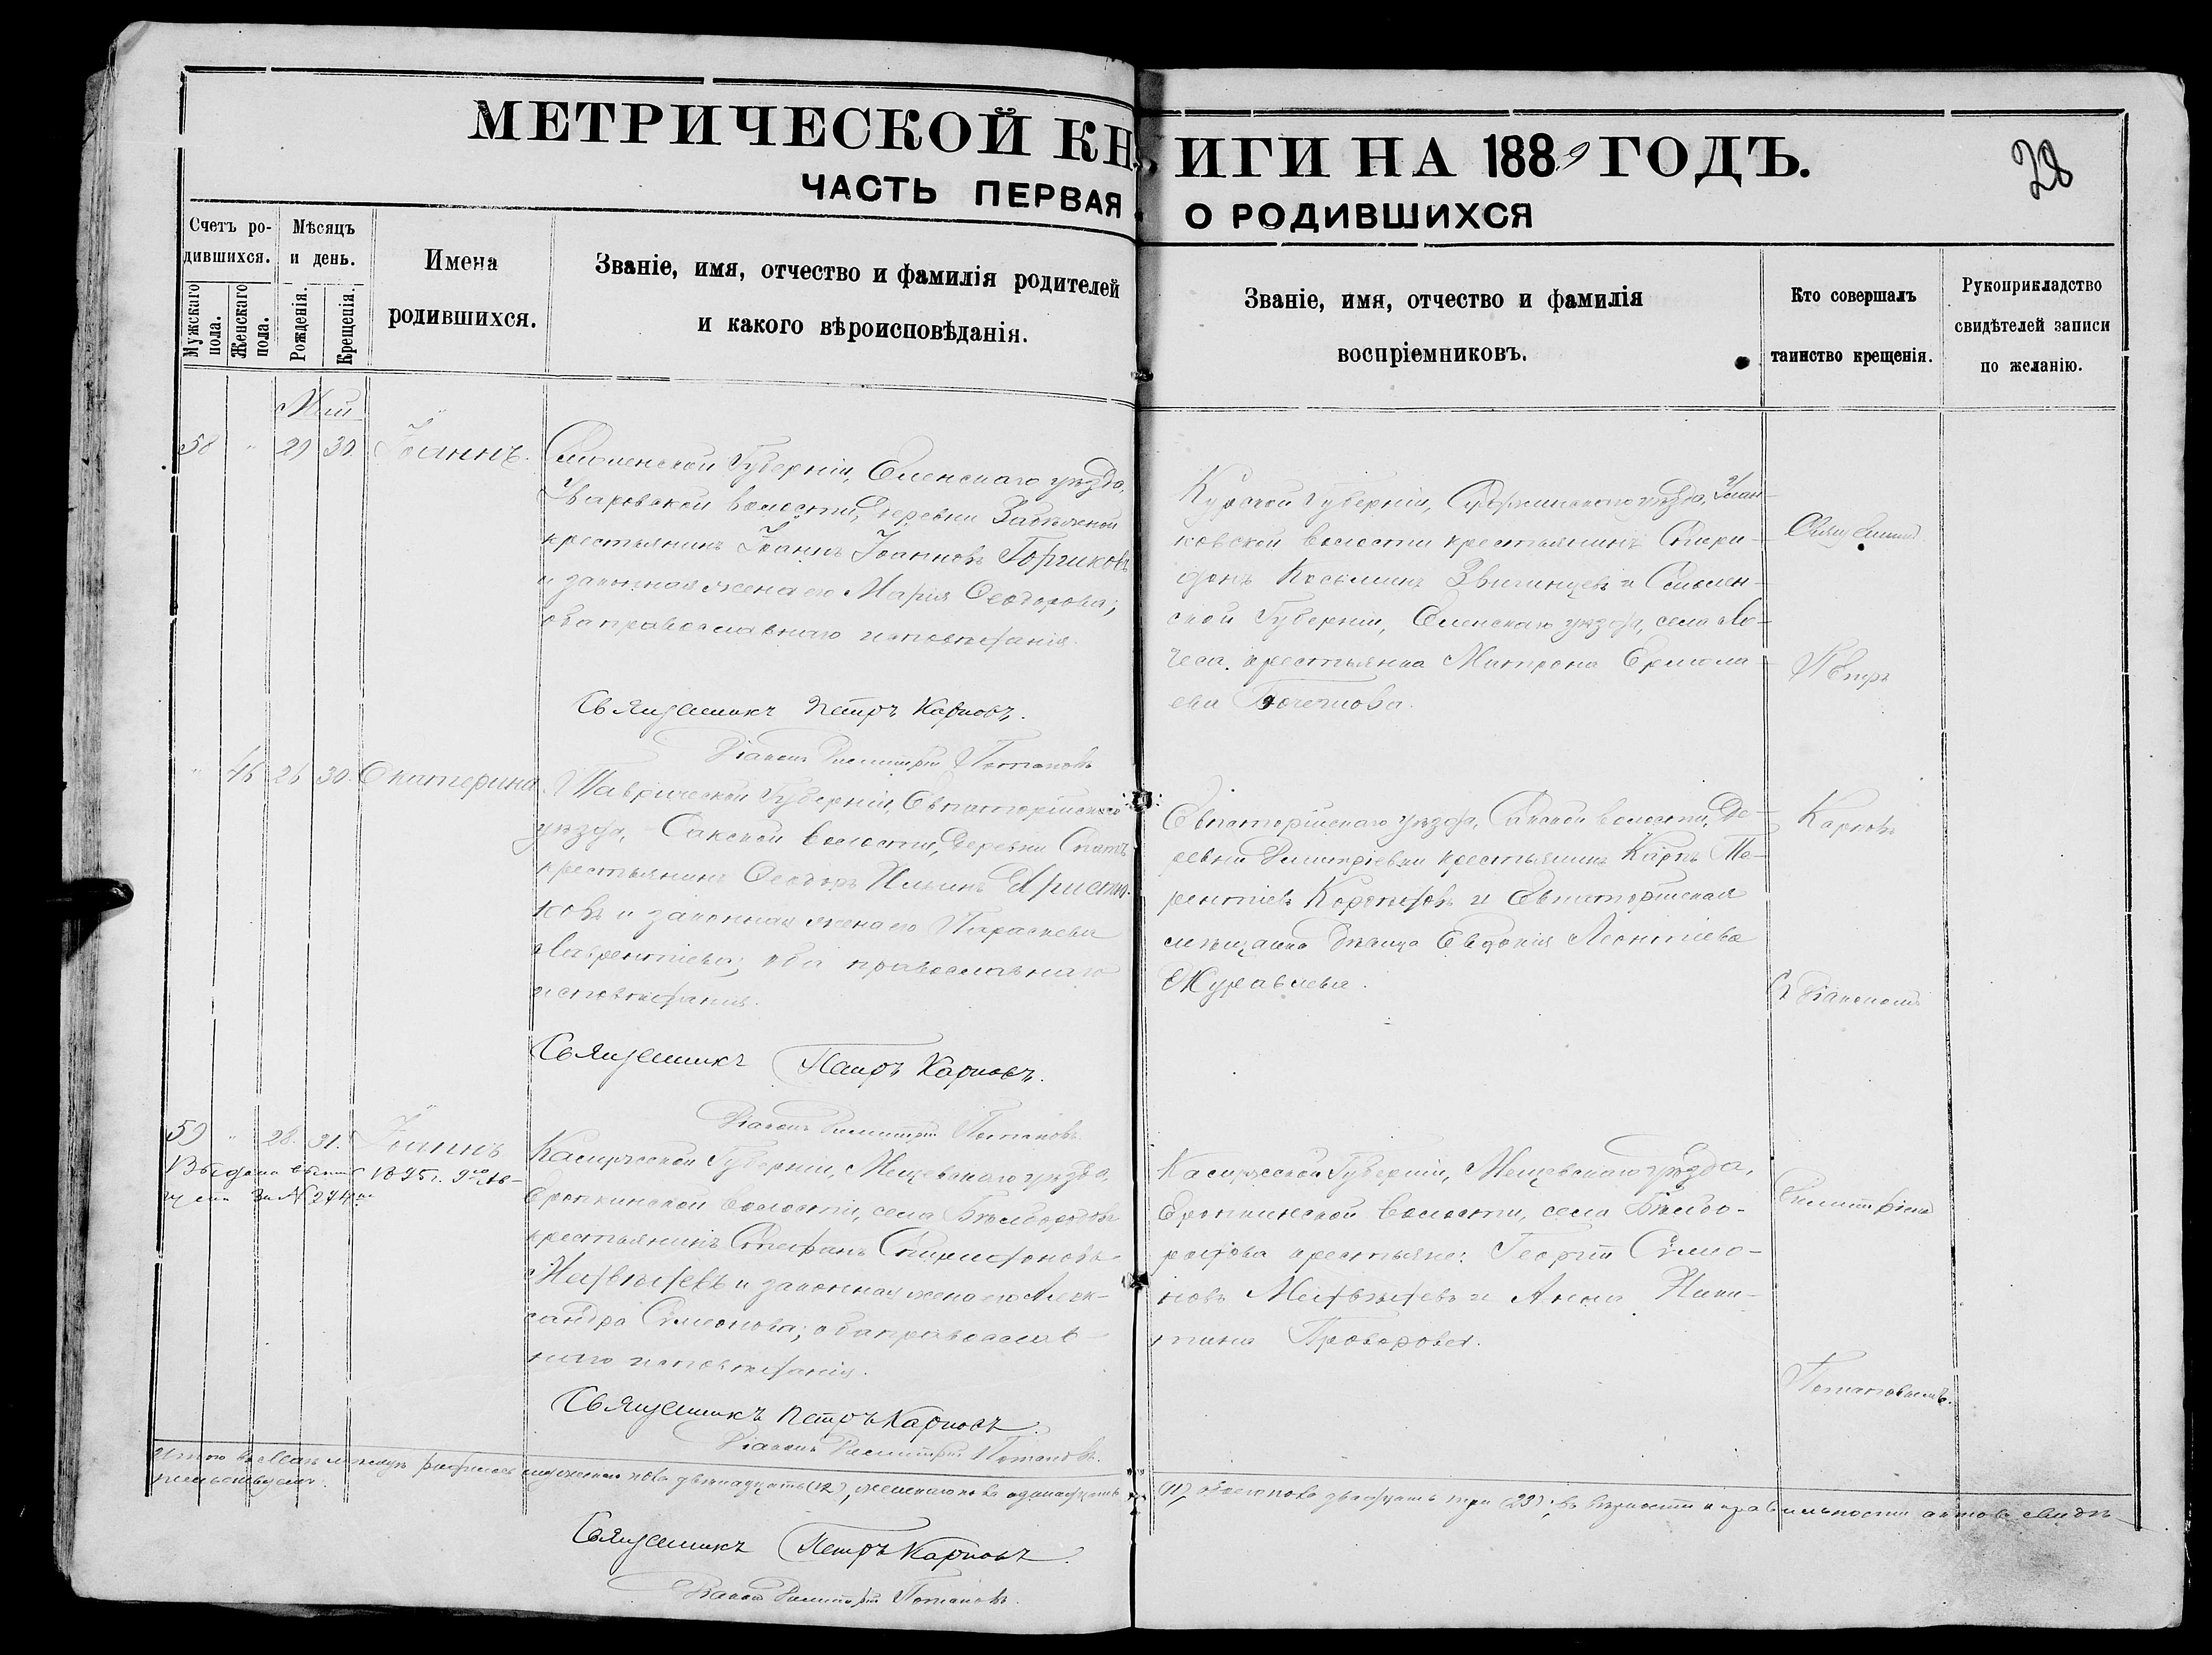 МЕТРИЧЕСКОЙ КНИГИ НА 1889 ГОДЪ.
28
ЧАСТЬ ПЕРВАЯ О РОДИВШИХСЯ
Счетъ родившихся.
Мужскаго пола.
Женскаго пола.
Мѣсяцъ и день.
Рожденія.
Крещенія.
Имена
родившихся.
Званіе, имя, отчество и фамилія родителей
и какого вѣроисповѣданія.
Званіе, имя, отчество и фамилія
воспріемниковъ.
Кто совершалъ
таинство крещенія.
Рукоприкладство
свидѣтелей записи
по желанію.
Май
58 " 29 30. Іоаннъ.
Смоленской Губерніи, Еленскаго уѣзда,
волости, деревни
крестьянинъ Іоаннъ Іоанновъ
и законная жена его Марія Ѳеодорова;
оба православнаго исповѣданія.
Священникъ Петръ Карповъ.
Діаконъ Димитрій Потаповъ
Курской Губерніи, уѣзда,
волости крестьянинъ Спири-
донъ Косьминъ и Смолен-
ской Губерніи, Еленскаго уѣзда, села
крестьянка Матрона Ермола-
ева
Священник
Петръ
Карповъ
съ Діакономъ
Димитріемъ
Потаповымъ.
" 46 26 30. Екатерина.
Таврической Губерніи, Евпаторійскаго
уѣзда, Сакской волости, деревни
крестьянинъ Ѳеодоръ Ильинъ
ковъ и законная жена его Параскева
Лаврентіева; оба православнаго
исповѣданія.
Священникъ Петръ Карповъ.
Діаконъ Димитрій Потаповъ.
Евпаторійскаго уѣзда, Сакской волости, де-
ревни Димитріевки крестьянинъ Карпъ Те-
рентіевъ и Евпаторійская
мѣщанка дѣвица Евдокія Леонтіева
Журавлева.
59 " 28. 31. Іоаннъ
1895 г.
за №
Калужской Губерніи, Мещевскаго уѣзда,
волости, села
крестьянинъ Стефанъ Спиридоновъ
Медвѣдевъ и законная жена его Алек-
сандра Симеонова; оба православ-
наго исповѣданія.
Священникъ Петръ Карповъ.
Діаконъ Димитрій Потаповъ.
Калужской Губерніи, Мещевскаго уѣзда,
волости, села
крестьяне: Георгій Симео-
новъ Медвѣдевъ и Анна Ники-
тина Проворова.
Итого въ Маѣ мѣсяцѣ родилось мужескаго пола двѣнадцать (12), женскаго пола одинадцать (11), обоего пола двадцать три (23); въ вѣрности и правильности актовъ свидѣ-
тельствуемъ:
Священникъ Петръ Карповъ.
Діаконъ Димитрій Потаповъ.